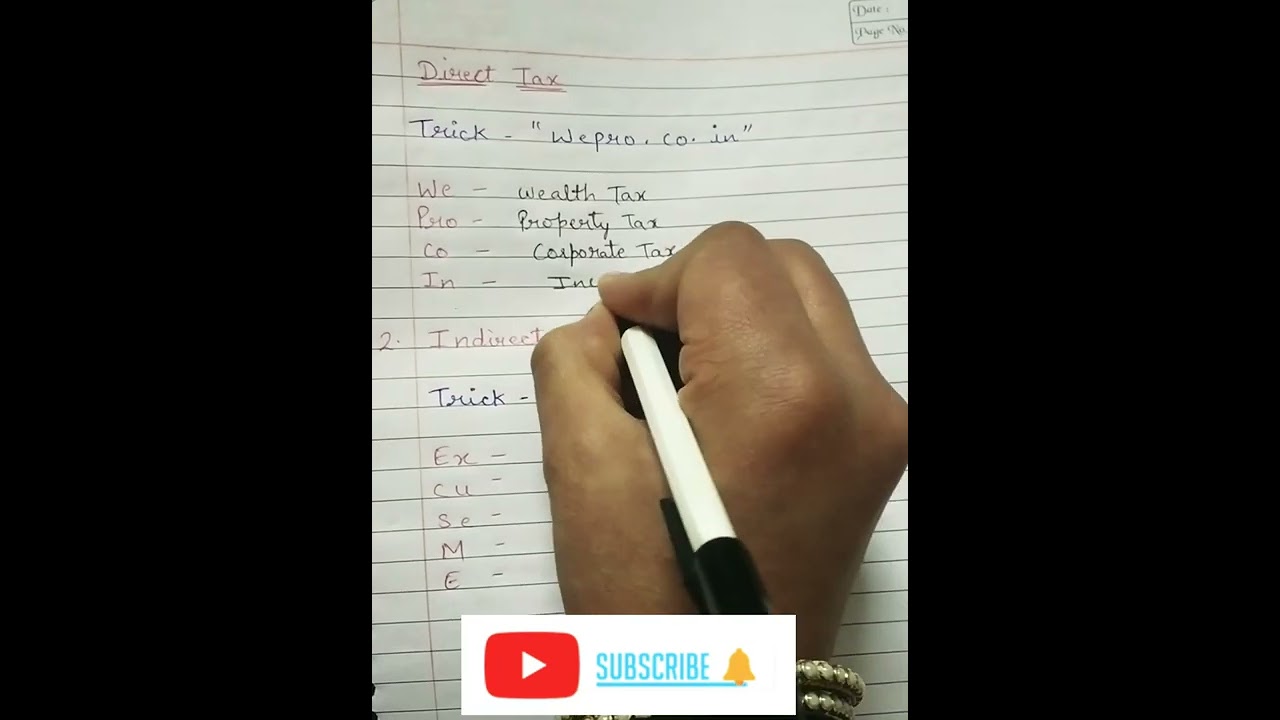 Date :
Page No.
Direct Tax
Trick - "Wepro. co. in"
We - Wealth Tax
Pro - Property Tax
Co - Corporate Tax
In - Inc
2. Indirect
Trick -
Ex -
Cu -
Se -
M -
E -
SUBSCRIBE